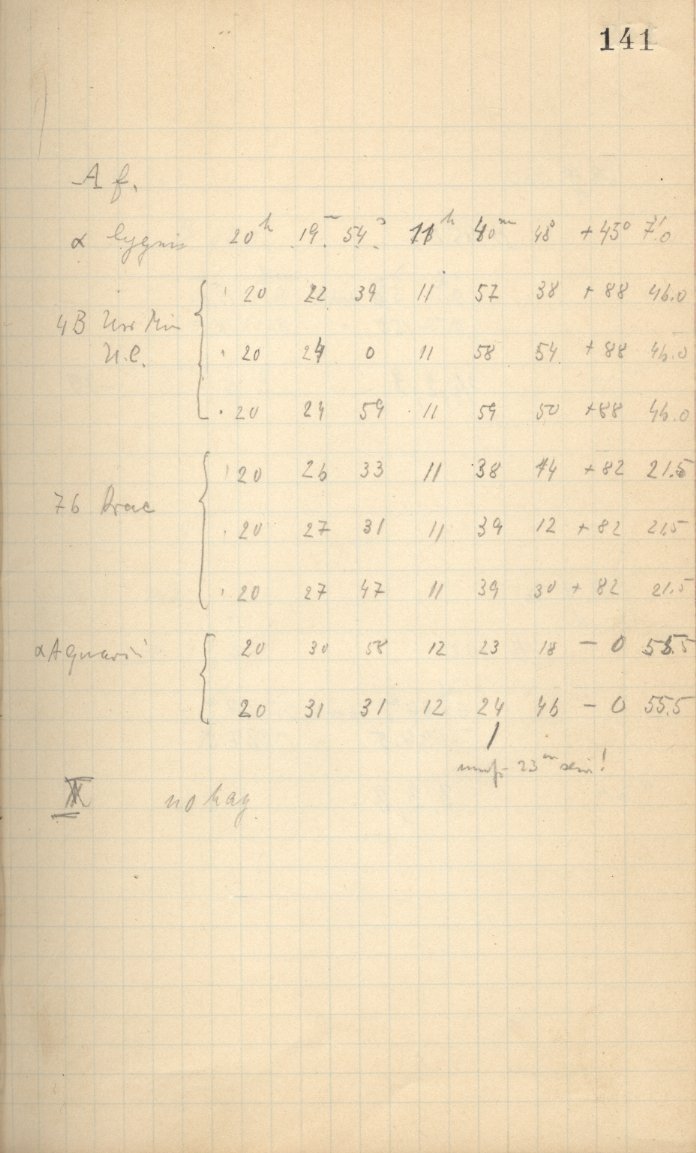 141
A f.
α Cygnis 20h 19m 54s 11h 40m 48s +45° 7'.0
20 22 39 11 57 38 +88 46.0
4B Urs Min
U.C. 20 24 0 11 58 54 +88 46.0
20 24 59 11 59 50 +88 46.0
20 26 33 11 38 44 +82 21.5
76 Drac
20 27 31 11 39 12 +82 21.5
20 27 47 11 39 30 +82 21.5
α Aquarii 20 30 58 12 23 18 - 0 55.5
20 31 31 12 24 46 - 0 55.5
muß 23m sein!
no hay